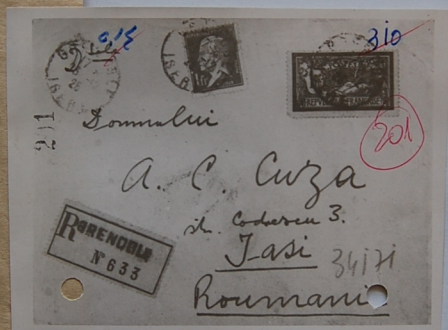 015
310
201
201
Domnului
A. C. Cuza
str. Codrescu 3.
Iasi
34171
Roumanie
R GRENOBLE
N° 633